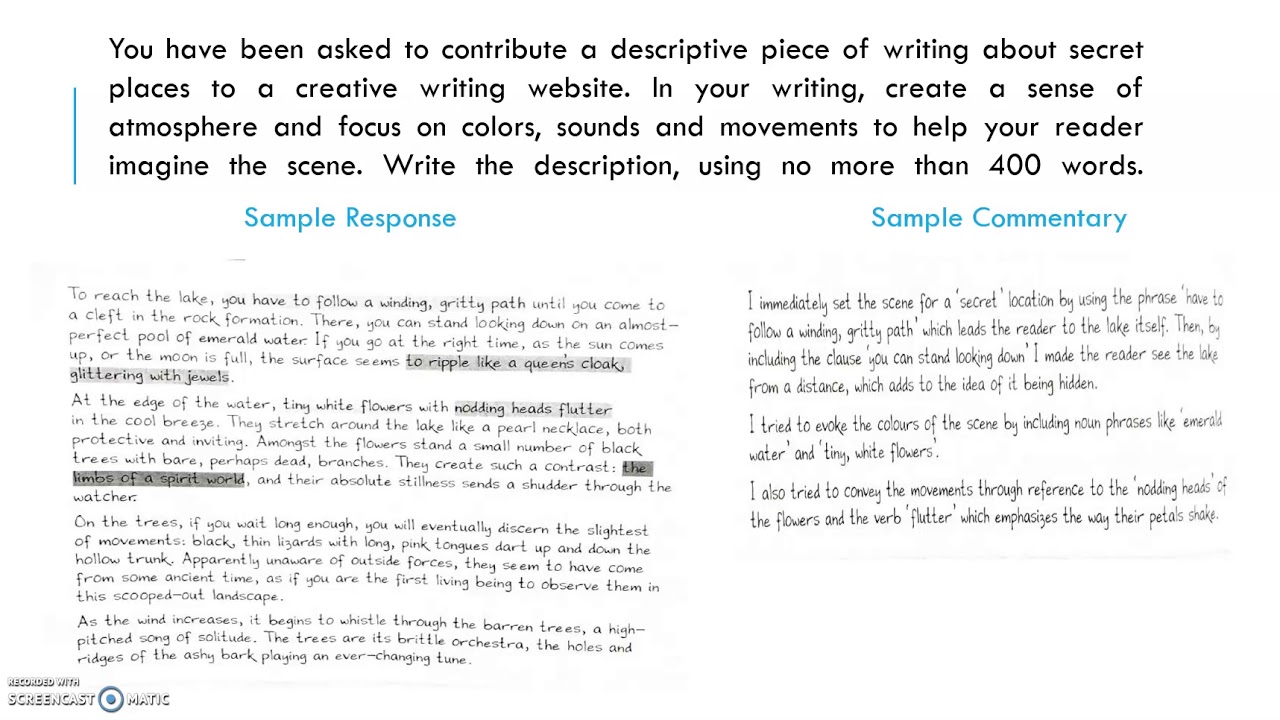 You have been asked to contribute a descriptive piece of writing about secret
places to a creative writing website. In your writing, create a sense of
atmosphere and focus on colors, sounds and movements to help your reader
imagine the scene. Write the description, using no more than 400 words.
Sample Response
To reach the lake, you have to follow a winding, gritty path until you come to
a cleft in the rock formation. There, you can stand looking down on an almost-
perfect pool of emerald water. If you go at the right time, as the sun comes
up, or the moon is full, the surface seems to ripple like a queen's cloak,
glittering with jewels.
At the edge of the water, tiny white flowers with nodding heads flutter
in the cool breeze. They stretch around the lake like a pearl necklace, both
protective and inviting. Amongst the flowers stand a small number of black
trees with bare, perhaps dead, branches. They create such a contrast: the
limbs of a spirit world, and their absolute stillness sends a shudder through the
watcher.
On the trees, if you wait long enough, you will eventually discern the slightest
of movements: black, thin lizards with long, pink tongues dart up and down the
hollow trunk. Apparently unaware of outside forces, they seem to have come
from some ancient time, as if you are the first living being to observe them in
this scooped-out landscape.
As the wind increases, it begins to whistle through the barren trees, a high-
pitched song of solitude. The trees are its brittle orchestra, the holes and
ridges of the ashy bark playing an ever-changing tune.
Sample Commentary
I immediately set the scene for a 'secret' location by using the phrase 'have to
follow a winding, gritty path' which leads the reader to the lake itself. Then, by
including the clause you can stand looking down' I made the reader see the lake
from a distance, which adds to the idea of it being hidden.
I tried to evoke the colours of the scene by including noun phrases like 'emerald
water' and 'tiny, white flowers'.
I also tried to convey the movements through reference to the 'nodding heads' of
the flowers and the verb 'flutter' which emphasizes the way their petals shake.
RECORDED WITH
SCREENCAST MATIC